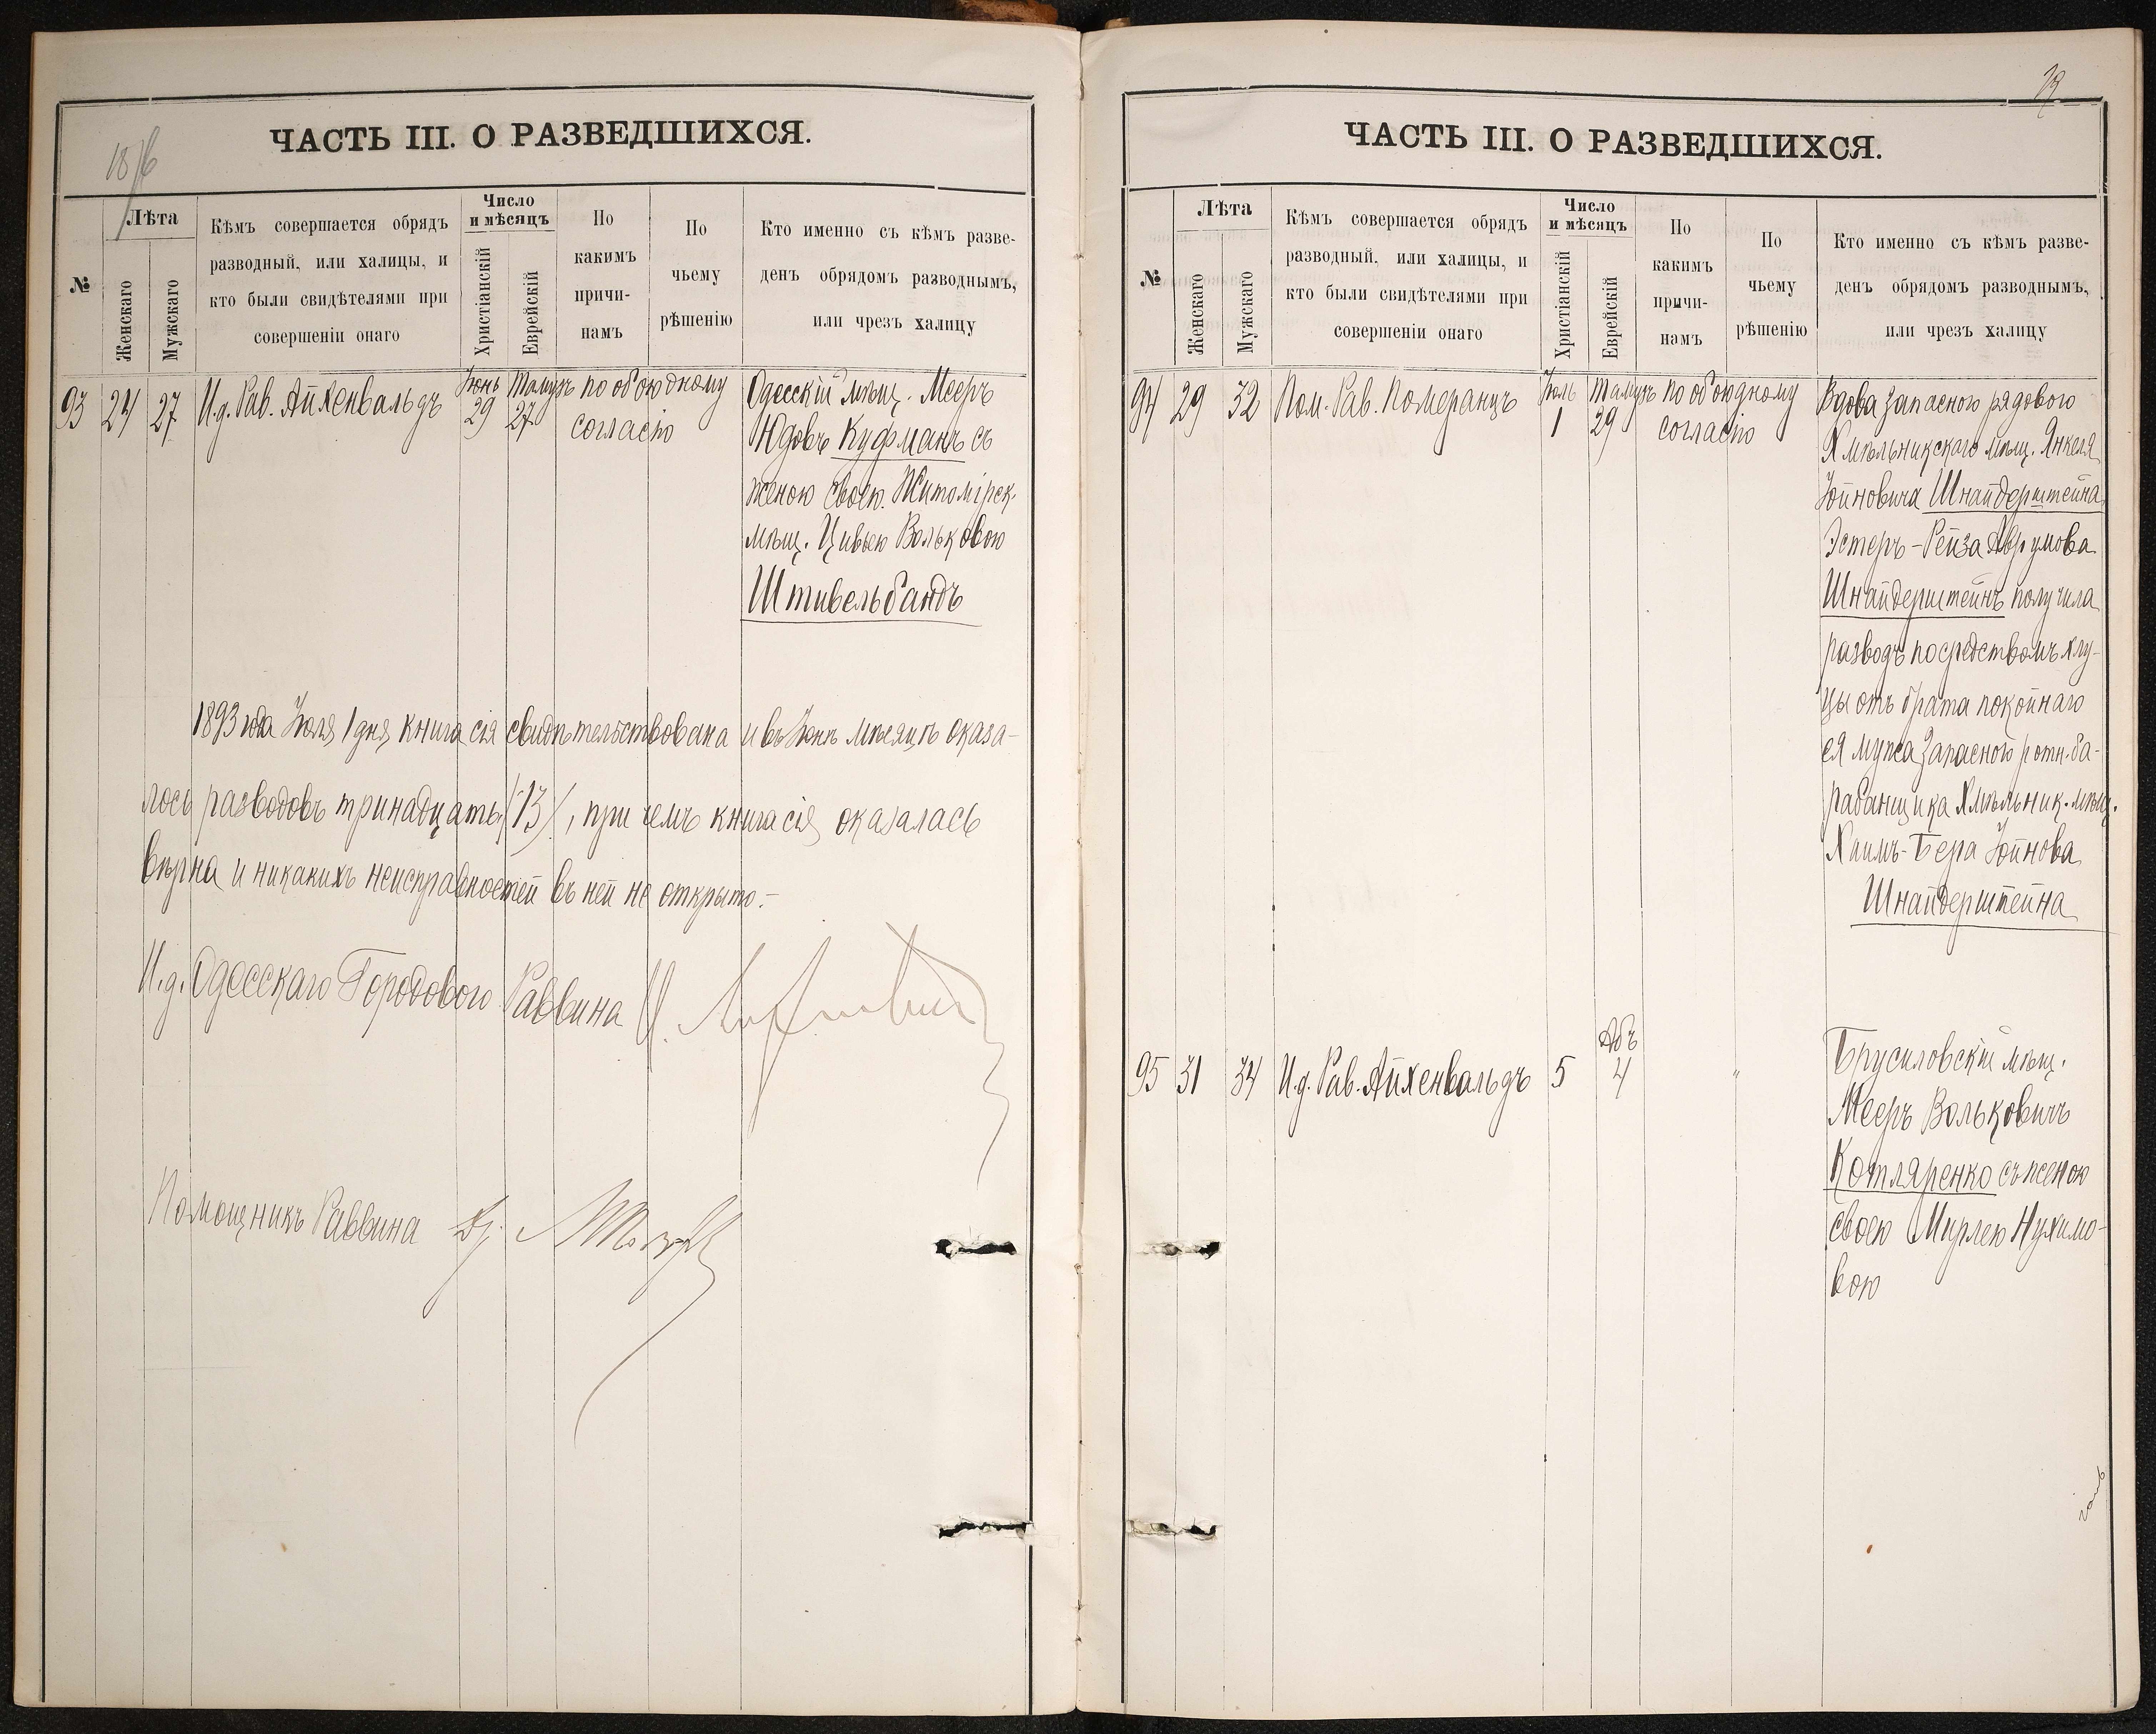 ЧАСТЬ III. О РАЗВЕДШИХСЯ.
№
Лѣта
Женскаго
Мужскаго
Кѣмъ совершается обрядъ
разводный, или халицы, и
кто были свидѣтелями при
совершеніи онаго
Число
и мѣсяцъ
Христіанскій
Еврейскій
По
какимъ
причи-
намъ
По
чьему
рѣшенію
Кто именно съ кѣмъ разве-
денъ обрядомъ разводнымъ,
или чрезъ халицу
93 24 27 И.д. Рав. Айхенвальдъ
Іюнь
29
Тамузъ
27
по обоюдному
согласію
Одесскій мѣщ. Мееръ
Юдовъ Куфманъ съ
женою своею Житомірск.
мѣщ. Цивьею Вольковою
Штивельбандъ
1893 года Іюля 1 дня книга сія свидѣтельствована и въ Іюнѣ мѣсяцѣ оказа-
лось разводовъ тринадцать (13), при чемъ книга сія оказалась
вѣрна и никакихъ неисправностей въ ней не открыто.-
И.д. Одесскаго Городового Раввина
Помощникъ Раввина
ЧАСТЬ III. О РАЗВЕДШИХСЯ.
№
Лѣта
Женскаго
Мужскаго
Кѣмъ совершается обрядъ
разводный, или халицы, и
кто были свидѣтелями при
совершеніи онаго
Число
и мѣсяцъ
Христіанскій
Еврейскій
По
какимъ
причи-
намъ
По
чьему
рѣшенію
Кто именно съ кѣмъ разве-
денъ обрядомъ разводнымъ,
или чрезъ халицу
94 29 32 Пом. Рав. Померанцъ
Іюль
1
Тамузъ
29
по обоюдному
согласію
Вдова запасного рядового
Хмѣльникскаго мѣщ. Янкеля
Іойновича Шнайдерштейна
Эстеръ-Рейза Аврумова
Шнайдерштейнъ получила
разводъ посредствомъ хлу-
цы отъ брата покойнаго
ея мужа запасного ротн. ба-
рабанщика Хмѣльник. мѣщ.
Хаимъ-Бера Іойнова
Шнайдерштейна
95 31 34 И.д. Рав. Айхенвальдъ 5
Абъ
4
"
Брусиловскій мѣщ.
Мееръ Вольковичъ
Котляренко съ женою
своею Мирлею Нухимо-
вою